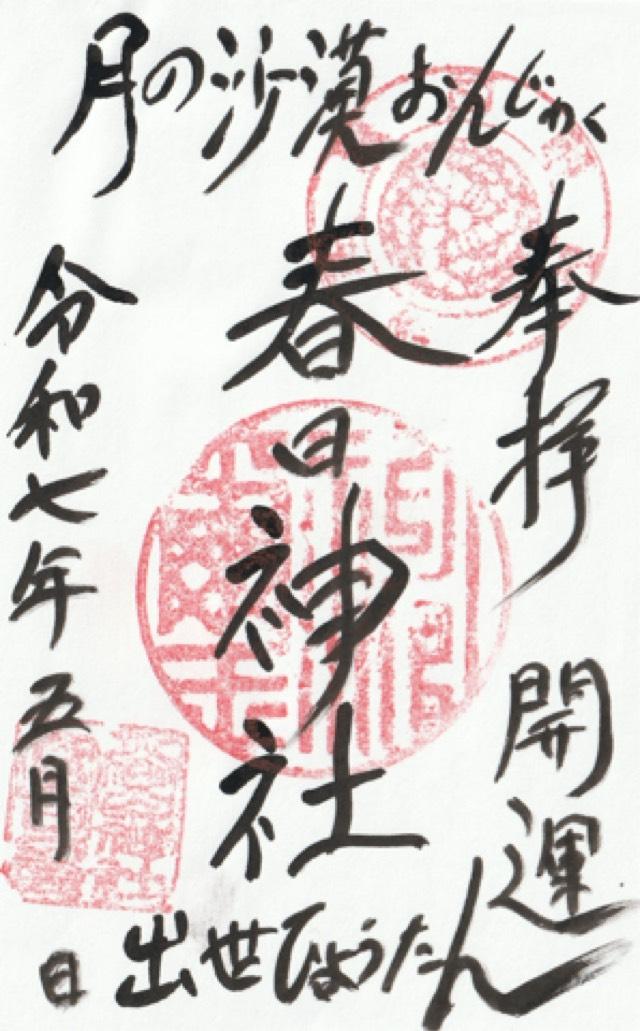 月の沙漠おんじゅく
奉拝
開運
春日神社
出世ひょうたん
令和七年五月
日